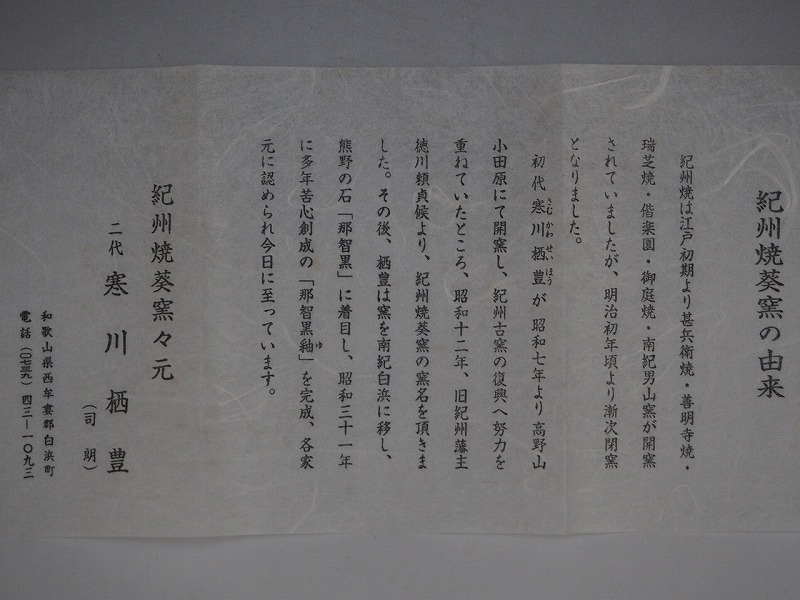 紀州焼葵窯の由来
紀州焼は江戸初期より甚兵衛焼・善明寺焼・
瑞芝焼・偕楽園・御庭焼・南紀男山窯が開窯
されていましたが、明治初年頃より漸次閉窯
となりました。
初代寒川栖豊が昭和七年より高野山
さむかわせいほう
小田原にて開窯し、紀州古窯の復興へ努力を
重ねていたところ、昭和十二年、旧紀州藩主
徳川頼貞候より、紀州焼葵窯の窯名を頂きま
した。その後、栖豊は窯を南紀白浜に移し、
熊野の石「那智黒」に着目し、昭和三十一年
に多年苦心創成の「那智黒釉」を完成、各家
ゆ
元に認められ今日に至っています。
紀州焼葵窯々元
二代 寒川栖豊
（司朗）
和歌山県西牟婁郡白浜町
電話（〇七三九）四三ー一〇九三